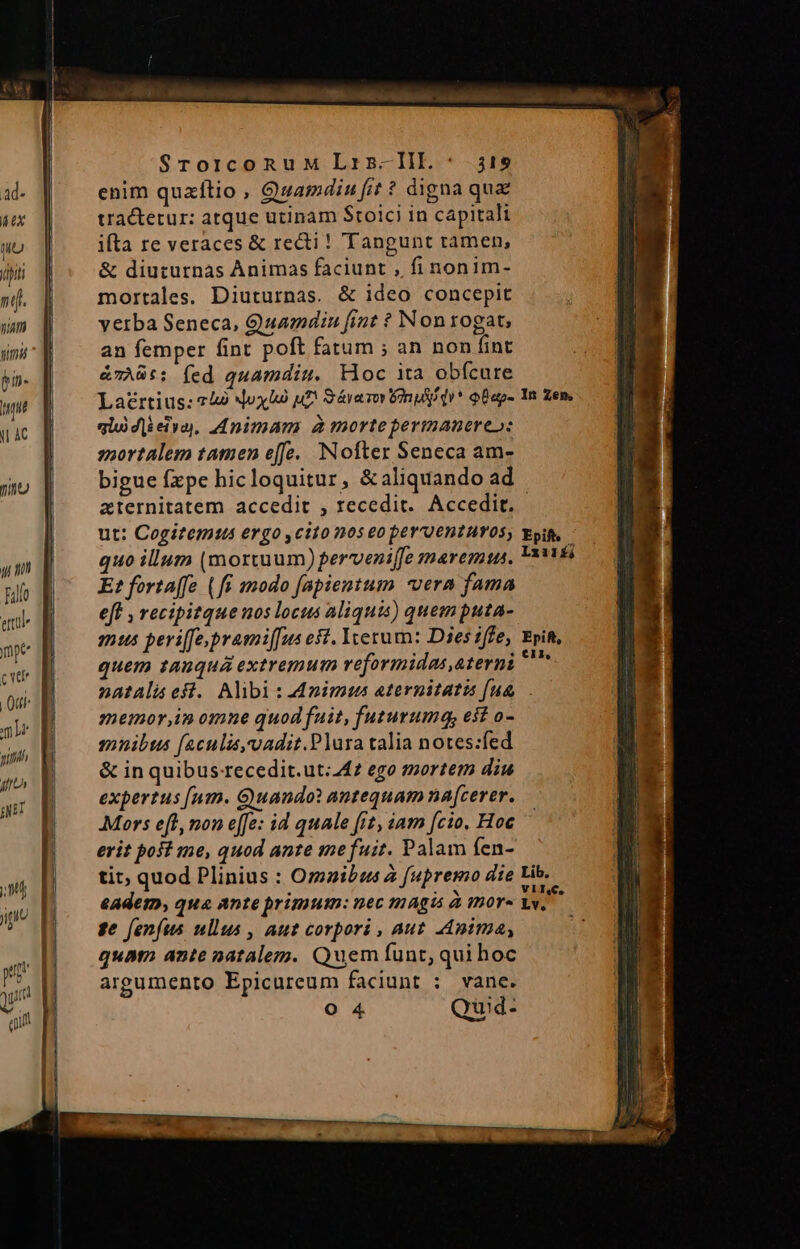 STOICORUM LIB. III. 319
enim quæſtio, Quamdiu ſit? digna quæ
tractetur: atque utinam Stoici in capitali
iſta re veraces & recti! Tangunt tamen,
& diuturnas Animas faciunt, ſi non im-
mortales. Diuturnas. & ideo concepit
verba Seneca, Quamdiu ſint? Non rogat,
an ſemper ſint poſt fatum; an non ſint
ἁπλῶς: ſed quamdiu. Hoc ita obſcure
Laërtius: τἠν ψυχὴν μετὰ θάνατον ἐπιμένειν φθαρ- In Zen.
τἠν δὲ εἶναι. Animam à morte permanere:
mortalem tamen eſſe. Noſter Seneca am-
bigue ſæpe hic loquitur, & aliquando ad
æternitatem accedit, recedit. Accedit.
ut: Cogitemus ergo, cito nos eo perventuros, Epiſt.
quo illum (mortuum) perveniſſe mæremus. LXIII.
Et fortaſſe (ſi modo ſapientum vera fama
eſt, recipitque nos locus aliquis) quem puta-
mus periſſe, præmiſſus eſt. Iterum: Dies iſte, Epiſt.
quem tanquã extremum reformidas, æterni CII.
natalis eſt. Alibi: Animus æternitatis ſuæ
memor, in omne quod fuit, futurumq, eſt o-
mnibus ſæculis, vadit. Plura talia notes: ſed
& in quibus recedit. ut: At ego mortem diu
expertus ſum. Quando? antequam naſcerer.
Mors eſt, non eſſe: id quale ſit, iam ſcio. Hoc
erit poſt me, quod ante me fuit. Palam ſen-
tit, quod Plinius: Omnibus à ſupremo die Lib.
eadem, quæ ante primum: nec magis à mor- VII. C. LV.
te ſenſus ullus, aut corpori, aut Animæ,
quàm ante natalem. Quem ſunt, qui hoc
argumento Epicureum faciunt: vane.
O 4 Quid-